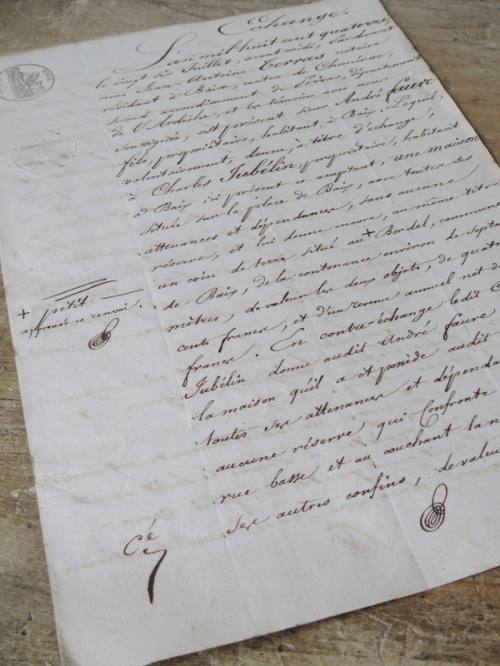 Echange.
L'an mil huit cent quatorze
le vingt six Juillet, avant midi, Pardevant
nous Jean-Antoine Terras notaire
résidant à Baix, canton de Chomérac,
arrondissement de Privas, département
de l'Ardèche, et les témoins avec nous
soussignés, est présent sieur André faure
fils, propriétaire, habitant à Baix, Lequel,
volontairement, donne, à titre d'échange,
à Charles Jubélin, propriétaire, habitant
à Baix ici présent et acceptant, une maison
située sur la place de Baix, avec toutes ses
attenances et dépendances, sans aucune
réserve, et lui donne encore, au même titre
un coin de terre situé au + Bordel, commune
de Baix, de la contenance environ de
mètres, de valeur les deux objets, de
cents francs, et d'un revenu annuel
francs. En contre-échange ledit
Jubélin donne audit André faure
la maison qu'il a et possède audit
toutes ses attenances et
aucune réserve qui Confronte
rue basse et au couchant la
ses autres confins, de
+ petit
approuvé ce renvoi.
cé